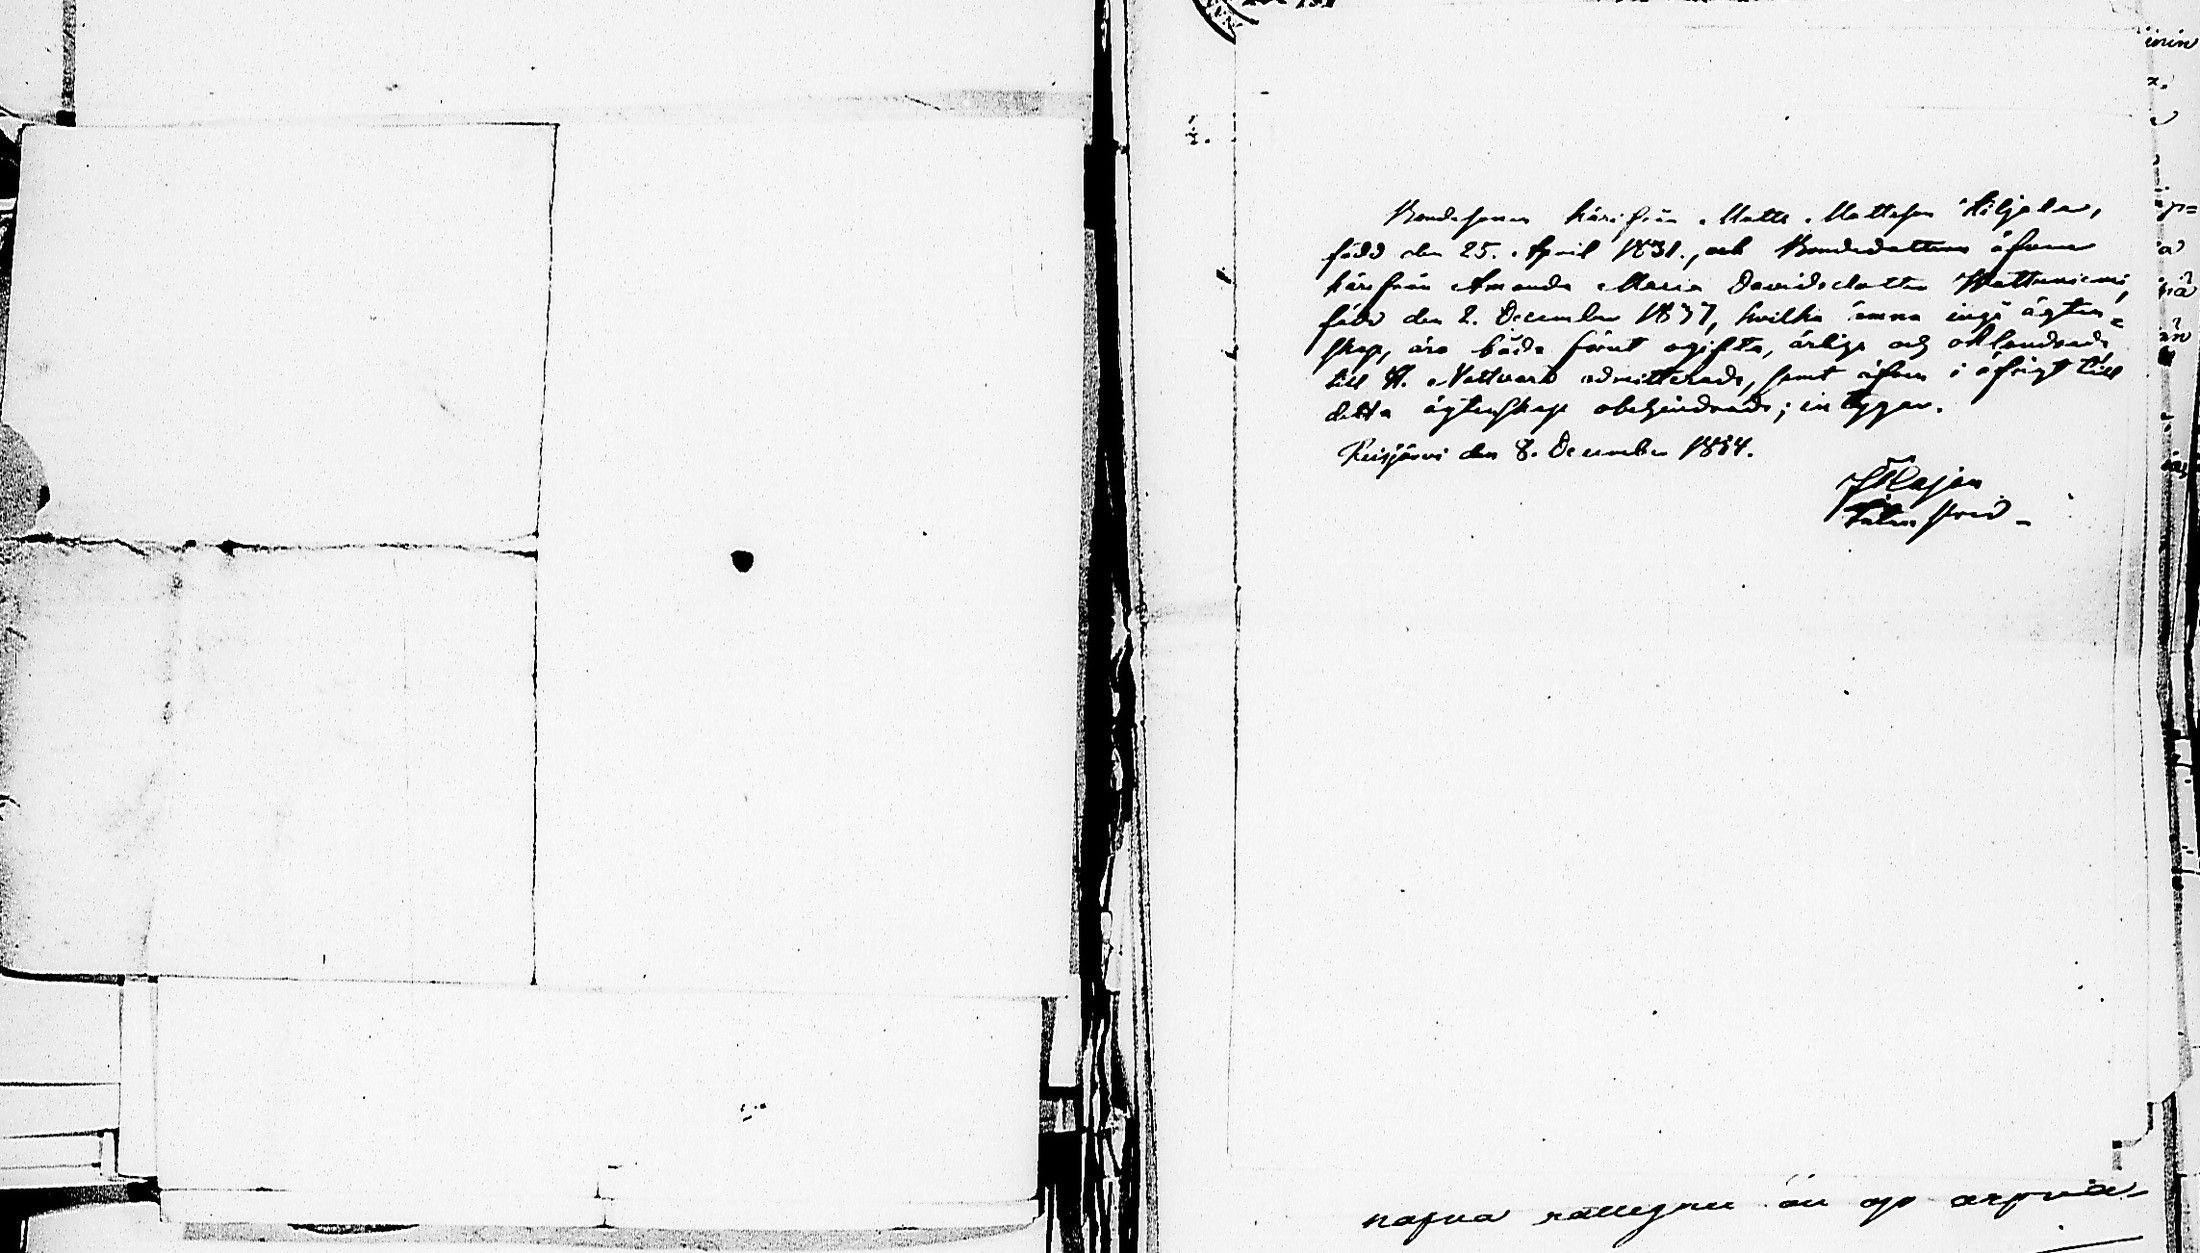 Bondesonen härifrån Matts Mattsson Kiljala,
född den 25. April 1831., och Bondedottren äfven
härifrån Amanda Maria Davidsdotter Wattuniemi,
född den 2. December 1837, hvilka ämna ingå ägten=
skap, äro både förut ogifta, ärliga och oklandrade
till H. Nattvard admitterade, samt äfven i öfrigt till
detta ägtenskap obehindrade; intygar.
Reisjärvi den 8. December 1854.